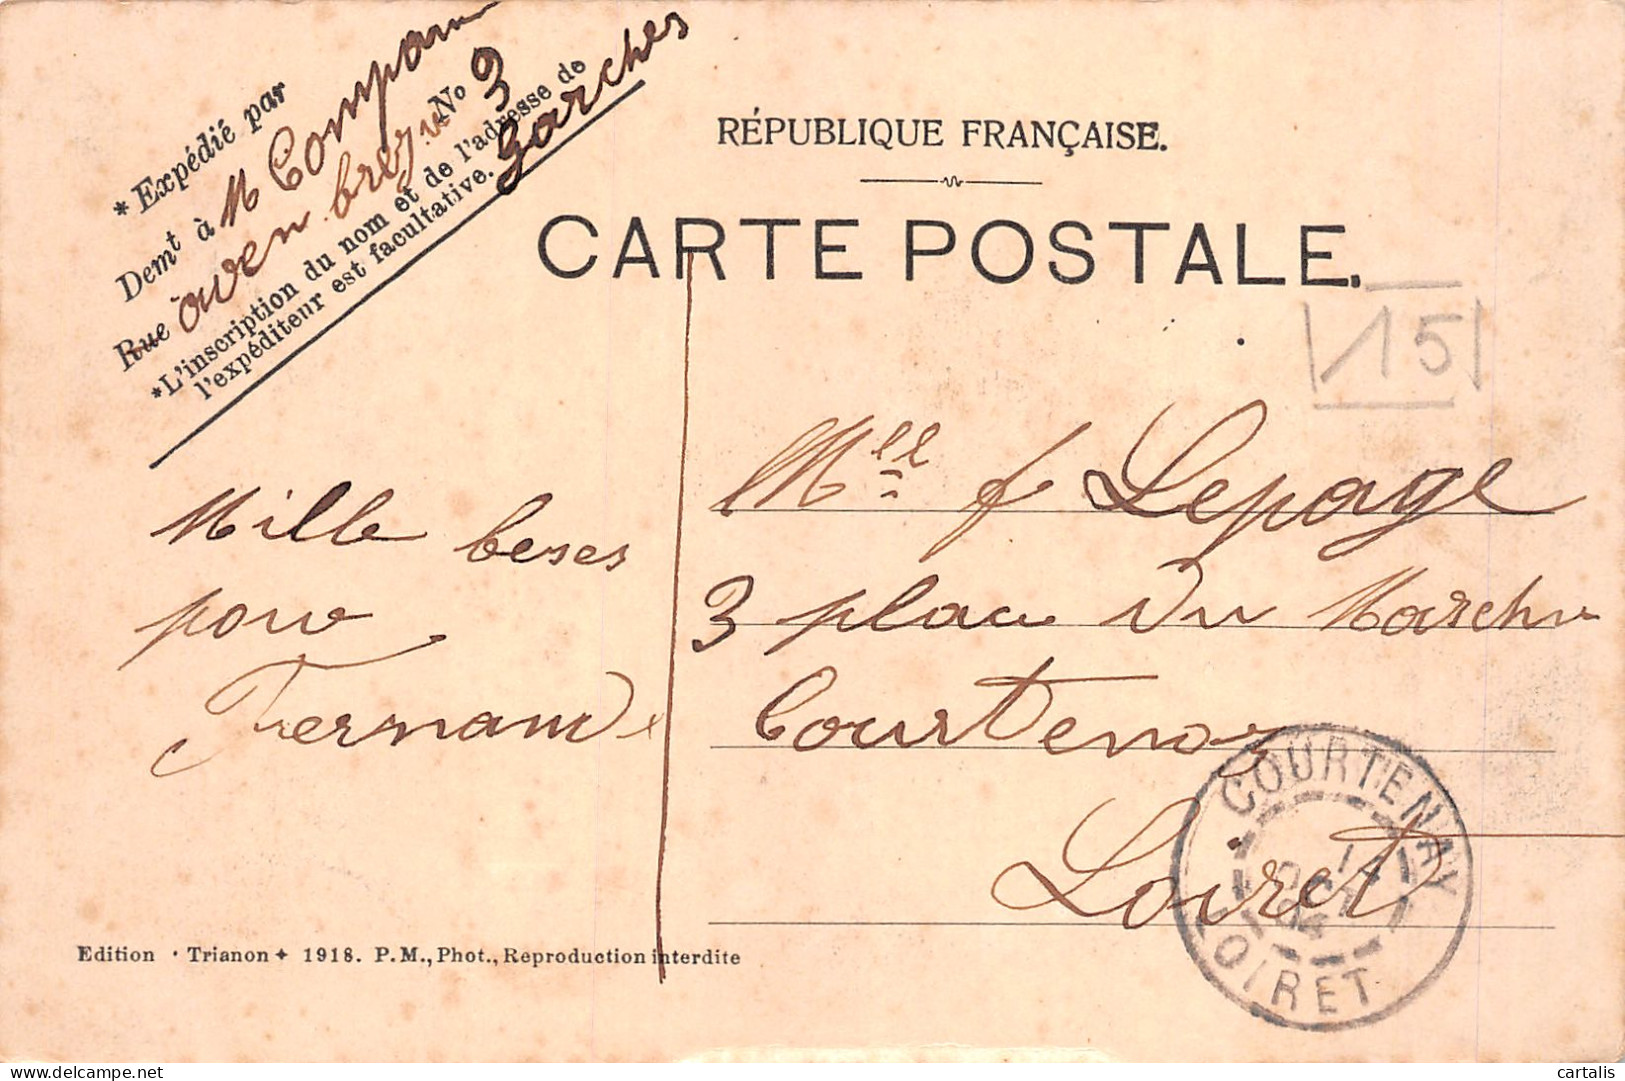 * Expédié par
Demt à M Compan
Rue N° 3
Garches
*L'inscription du nom et de l'adresse de
l'expéditeur est facultative.
RÉPUBLIQUE FRANÇAISE.
CARTE POSTALE.
15
Mille beses
pour
Fernand
Mell f Lepage
3 place du Marché
Courtenay
Loiret
COURTENAY
OCT
04
LOIRET
Edition · Trianon + 1918. P.M., Phot., Reproduction interdite
cartalis
delcampe.net